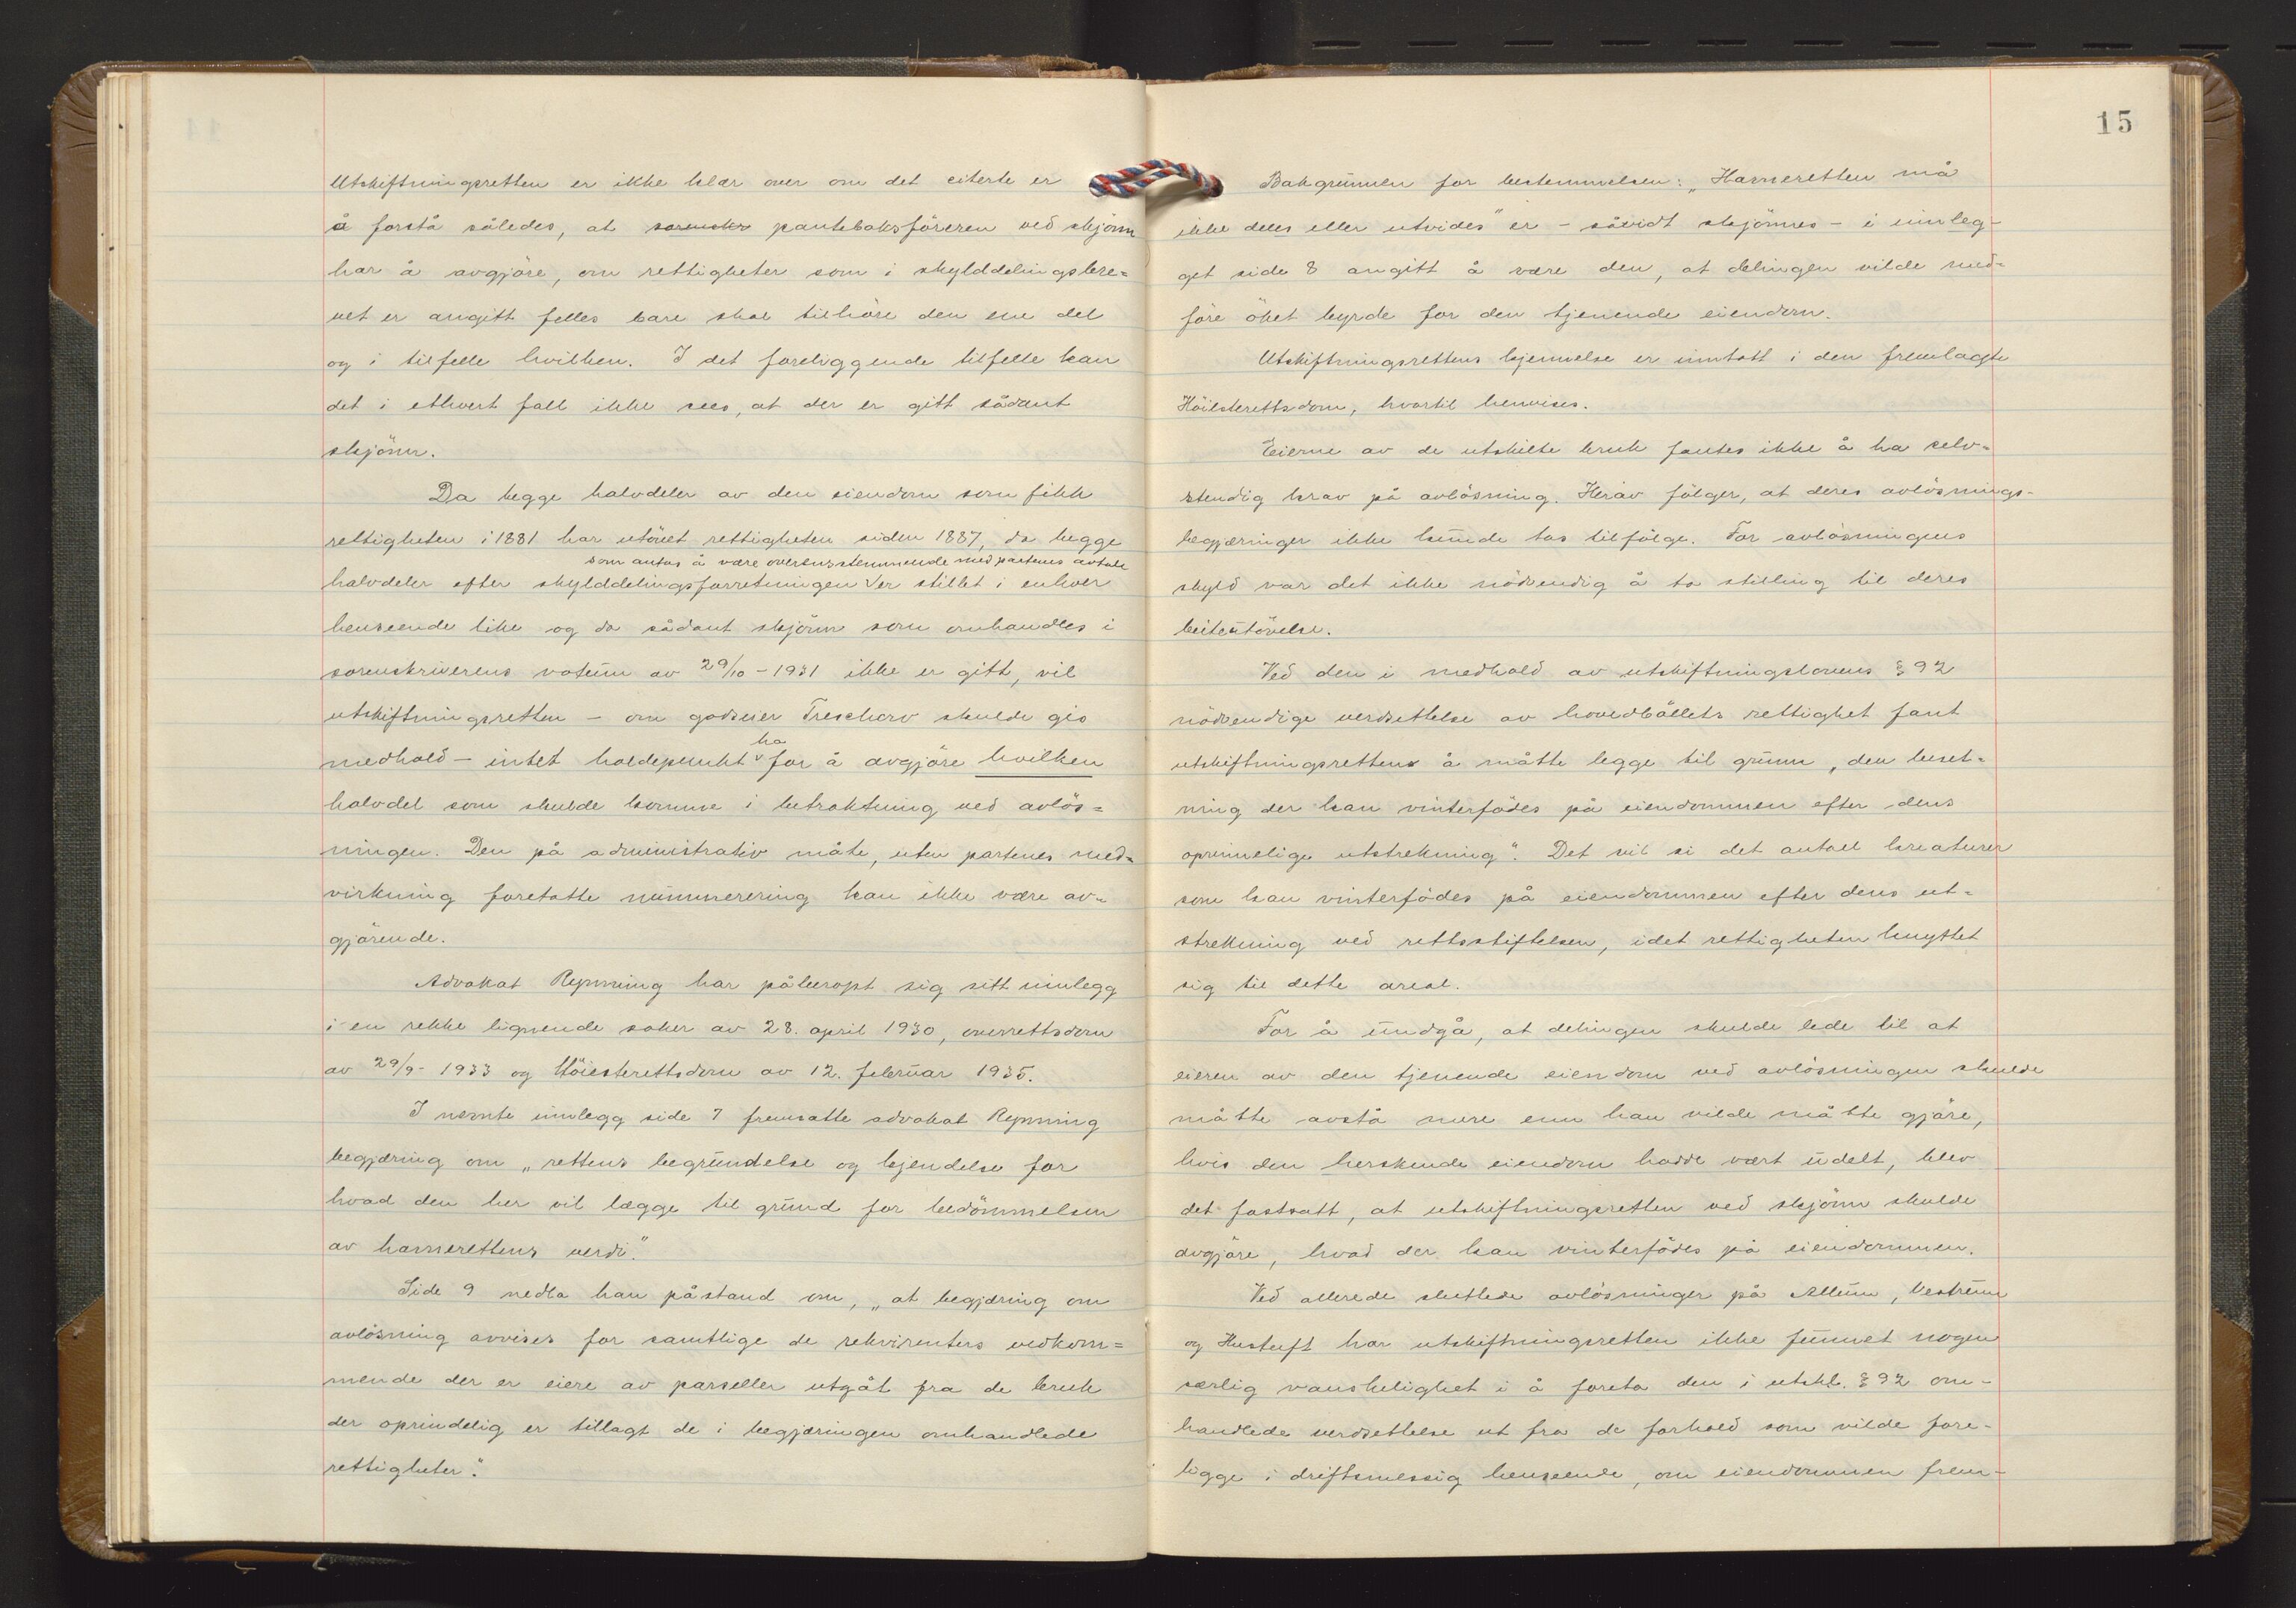 Utskiftningsretten er ikke klar over om det citerte er
å forstå således, at sorenskr panteboksföreren ved skjönn
har å avgjöre, om rettigheter som i skylddelingsbre=
vet er angitt felles bare skal tilhöre den ene del
og i tilfelle hvilken. I det foreliggende tilfelle kan
det i ethvert fall ikke sees, at der er gitt sådant
skjönn.
Da begge halvdeler av den eiendom som fikk
rettigheten i 1881 har utövet rettigheten siden 1887, da begge
som antas å være overensstemmende med partenes avtale
halvdeler efter skylddelingsforretningen v er stillet i enhver
henseende like og da sådant skjönn som omhandles i
sorenskriverens votum av 29/10-1931 ikke er gitt, vil
utskiftningsretten - om godseier Treschow skulde gis
ha
medhold - intet holdepunkt v for å avgjöre hvilken
halvdel som skulde komme i betraktning ved avlös=
ningen. Den på administrativ måte, uten partenes med=
virkning foretatte nummerering kan ikke være av=
gjörende.
Advokat Rynning har påberopt sig sitt innlegg
i en rekke lignende saker av 28. april 1930, overrettsdom
av 29/9-1933 og Höiesterettsdom av 12. februar 1935.
I nevnte innlegg side 7 fremsatte advokat Rynning
begjæring om „rettens begrundelse og kjendelse for
hvad den her vil lægge til grund for bedömmelsen
av havnerettens verdi."
Side 9 nedla han påstand om, „at begjæring om
avlösning avvises for samtlige de rekvirenters vedkom=
mende der er eiere av parseller utgåt fra de bruk
der oprindelig er tillagt de i begjæringen omhandlede
rettigheter."
15
Bakgrunnen for bestemmelsen: „Havneretten må
ikke deles eller utvides" er - såvidt skjönnes - i innleg-
get side 8 angitt å være den, at delingen vilde med=
före öket byrde for den tjenende eiendom.
Utskiftningsrettens kjennelse er inntatt i den fremlagte
Höiesterettsdom, hvortil henvises.
Eierne av de utskilte bruk fantes ikke å ha selv=
stendig krav på avlösning. Herav fölger, at deres avlösnings-
begjæringer ikke kunde tas tilfölge. For avlösningens
skyld var det ikke nödvendig å ta stilling til deres
beiteutövelse.
Ved den i medhold av utskiftningslovens § 92
nödvendige verdsettelse av hovedböllets rettighet fant
utskiftningsretten å måtte legge til grunn „den beset=
ning der kan vinterfödes på eiendommen efter dens
oprinnelige utstrekning". Det vil si det antall kreaturer
som kan vinterfödes på eiendommen efter dens ut=
strekning ved rettsstiftelsen, idet rettigheten knyttet
sig til dette areal.
For å undgå, at delingen skulde lede til at
eieren av den tjenende eiendom ved avlösningen skulde
måtte avstå mere enn han vilde måtte gjöre,
hvis den herskende eiendom hadde vært udelt, blev
det fastsatt, at utskiftningsretten ved skjönn skulde
avgjöre, hvad der kan vinterfödes på eiendommen.
Ved allerede sluttede avlösninger på Allum, Vestrum
og Hustuft har utskiftningsretten ikke funnet nogen
særlig vanskelighet i å foreta den i utskl. § 92 om-
handlede verdsettelse ut fra de forhold som vilde fore-
ligge i driftsmessig henseende, om eiendommen frem-